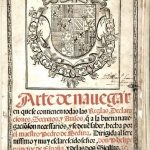 Arte de nauegar
en que se contienen todas las Reglas, Declara
ciones, Secretos, y Auisos, q a la buena naue
gacion son necessarios, y se deuē saber, hecha por
el maestro Pedro de Medina. Dirigida al sere
nissimo y muy esclarescido señor, don Phelipe
principe de España, y de las dos Sicilias.